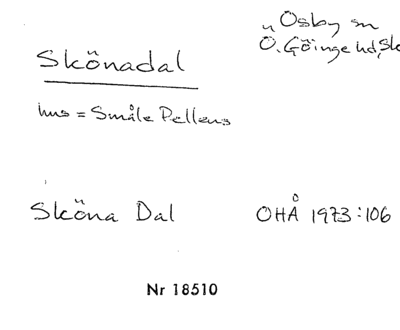 Ö Osby sn
Skönadal
Ö. Göinge hd, Sk
hus = Småle Pellens
Sköna Dal
OHÅ 1973:106
Nr 18510